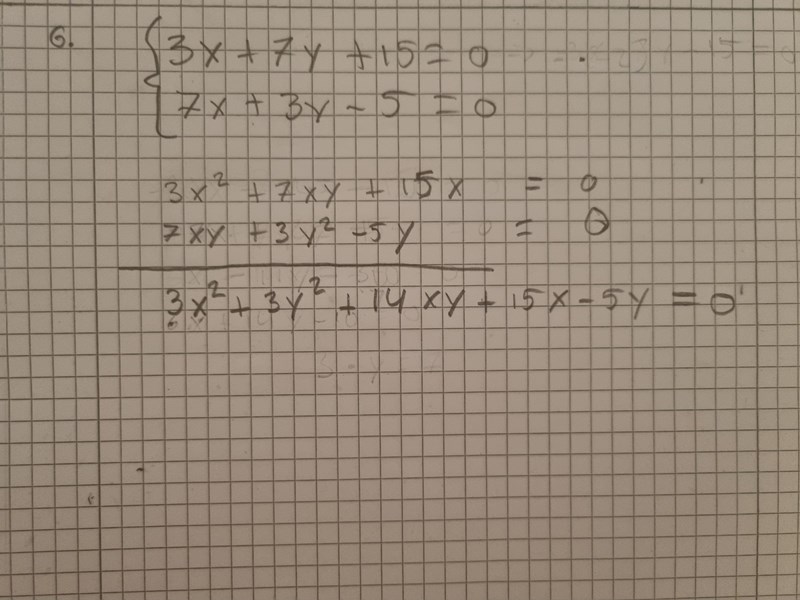 6. 3x + 7y + 15 = 0
7x + 3y - 5 = 0
3x² + 7xy + 15x = 0
7xy + 3y² - 5y = 0
3x² + 3y² + 14xy + 15x - 5y = 0